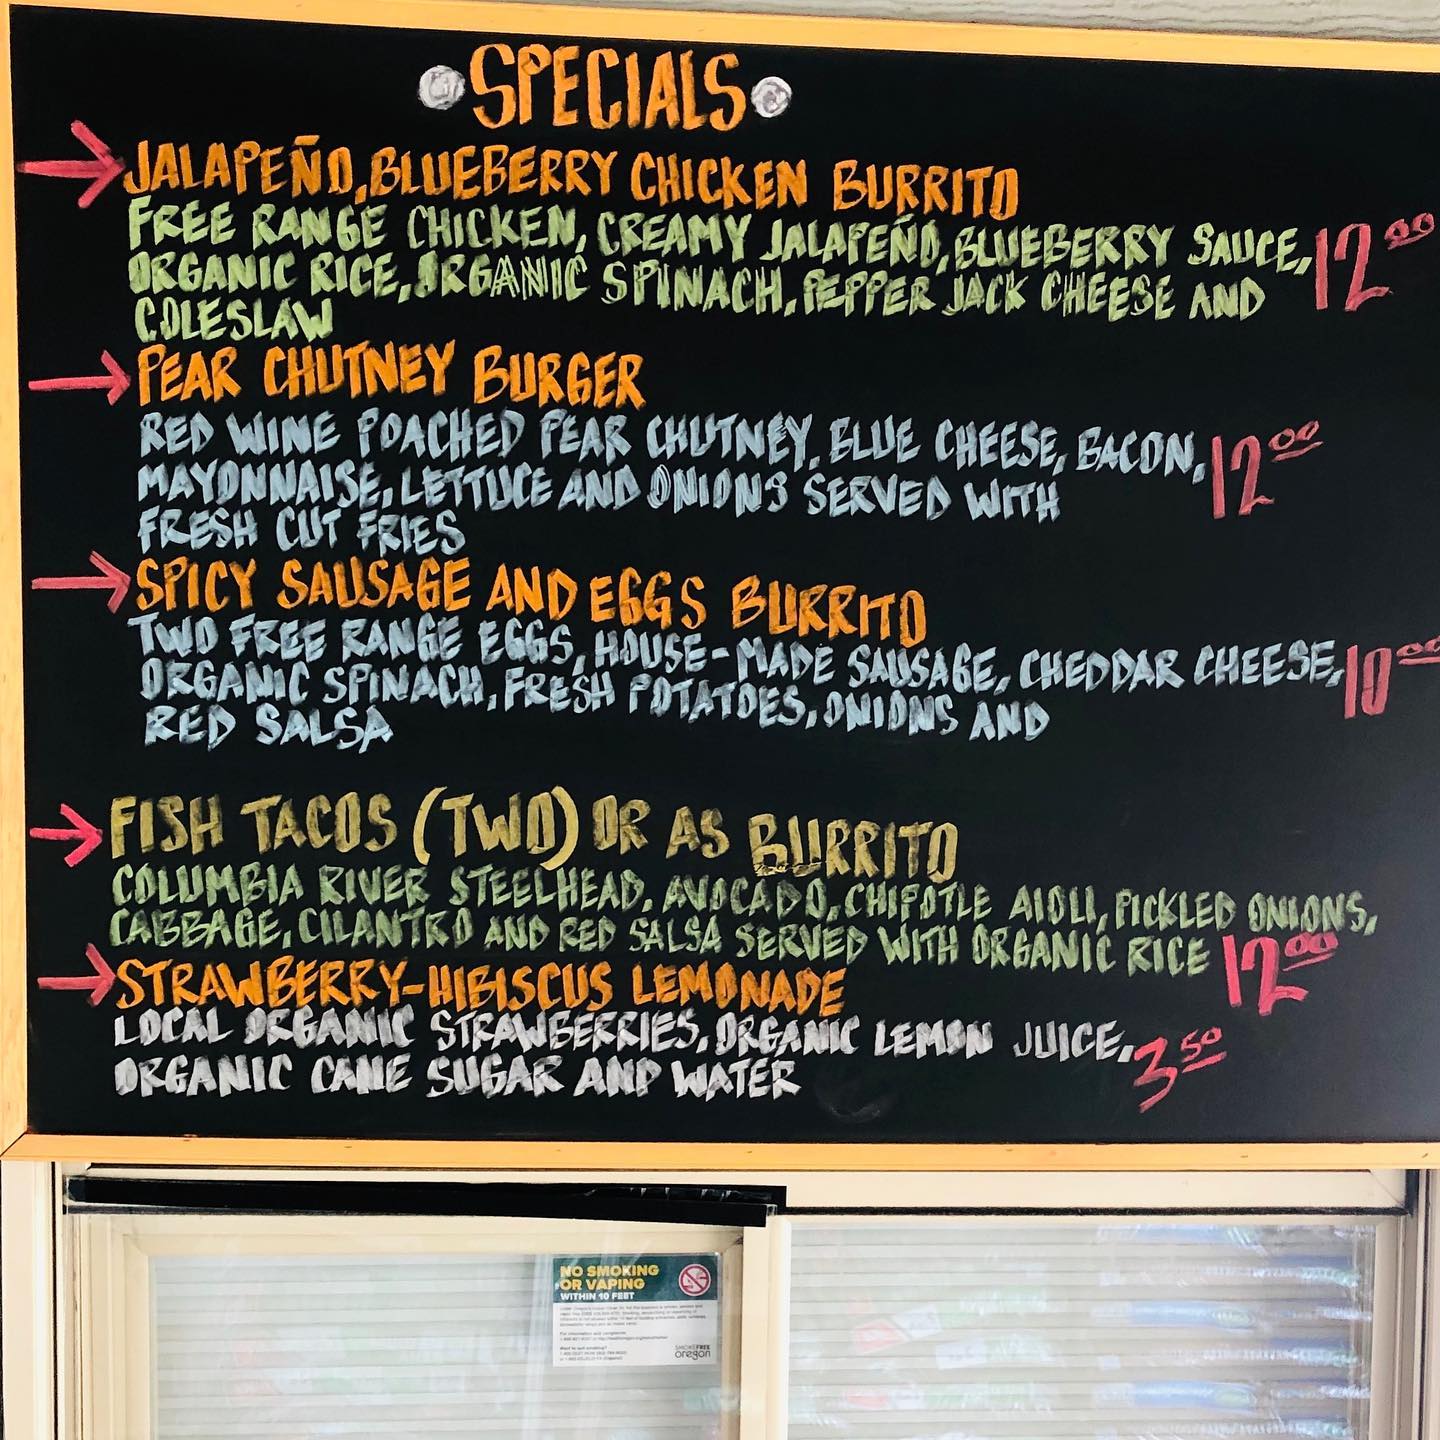 SPECIALS
JALAPEÑO, BLUEBERRY CHICKEN BURRITO
FREE RANGE CHICKEN, CREAMY JALAPEÑO, BLUEBERRY SAUCE, 12.00
ORGANIC RICE, ORGANIC SPINACH, PEPPER JACK CHEESE AND
COLESLAW
PEAR CHUTNEY BURGER
RED WINE POACHED PEAR CHUTNEY, BLUE CHEESE, BACON, 12.00
MAYONNAISE, LETTUCE AND ONIONS SERVED WITH
FRESH CUT FRIES
SPICY SAUSAGE AND EGGS BURRITO
TWO FREE RANGE EGGS, HOUSE-MADE SAUSAGE, CHEDDAR CHEESE, 10.00
ORGANIC SPINACH, FRESH POTATOES, ONIONS AND
RED SALSA
FISH TACOS (TWO) OR AS BURRITO
COLUMBIA RIVER STEELHEAD, AVOCADO, CHIPOTLE AIOLI, PICKLED ONIONS,
CABBAGE, CILANTRO AND RED SALSA SERVED WITH ORGANIC RICE 12.00
STRAWBERRY-HIBISCUS LEMONADE
LOCAL ORGANIC STRAWBERRIES, ORGANIC LEMON JUICE, 3.50
ORGANIC CANE SUGAR AND WATER
NO SMOKING
OR VAPING
WITHIN 10 FEET
SMOKEFREE
oregon